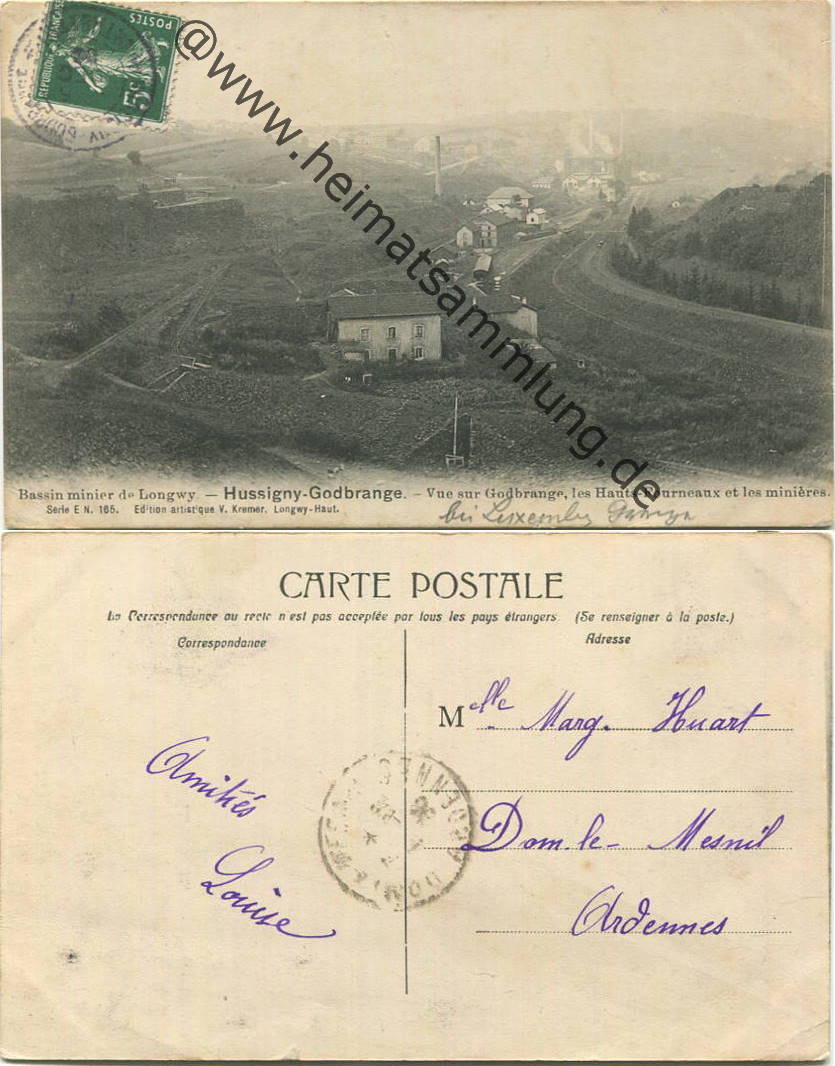 POSTES
REPUBLIQUE FRANÇAISE
5c
@www.heimatsammlung.de
Bassin minier de Longwy. — Hussigny-Godbrange. — Vue sur Godbrange, les Hauts-Fourneaux et les minières.
Série E N. 165. Edition artistique V. Kremer, Longwy-Haut.
bei Luxemburg
CARTE POSTALE
La Correspondance au recto n'est pas acceptée par tous les pays étrangers. (Se renseigner à la poste.)
Correspondance
Adresse
Melle Marg. Huart
Amitiés
Louise
Dom-le-Mesnil
Ardennes
ARDENNES